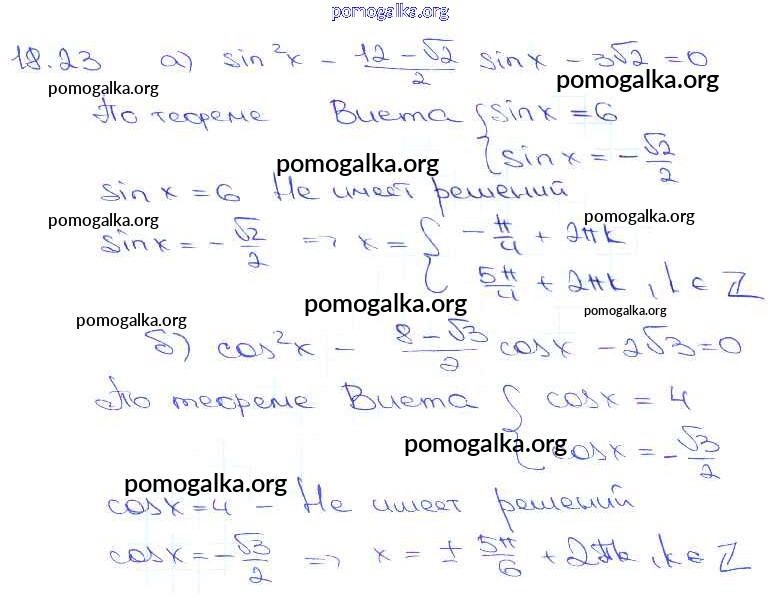 pomogalka.org
18.23 а) sin²x - (12-√2)/2 sinx - 3√2 = 0
pomogalka.org pomogalka.org
По теореме Виета { sinx = 6
pomogalka.org { sinx = -√2/2
sinx = 6 Не имеет решений
pomogalka.org pomogalka.org
sinx = -√2/2 => x = { -π/4 + 2πk
{ 5π/4 + 2πk, k ∈ Z
pomogalka.org
pomogalka.org pomogalka.org
б) cos²x - (8-√3)/2 cosx - 2√3 = 0
По теореме Виета { cosx = 4
pomogalka.org { cosx = -√3/2
pomogalka.org
cosx = 4 - Не имеет решений
cosx = -√3/2 => x = ± 5π/6 + 2πk, k ∈ Z